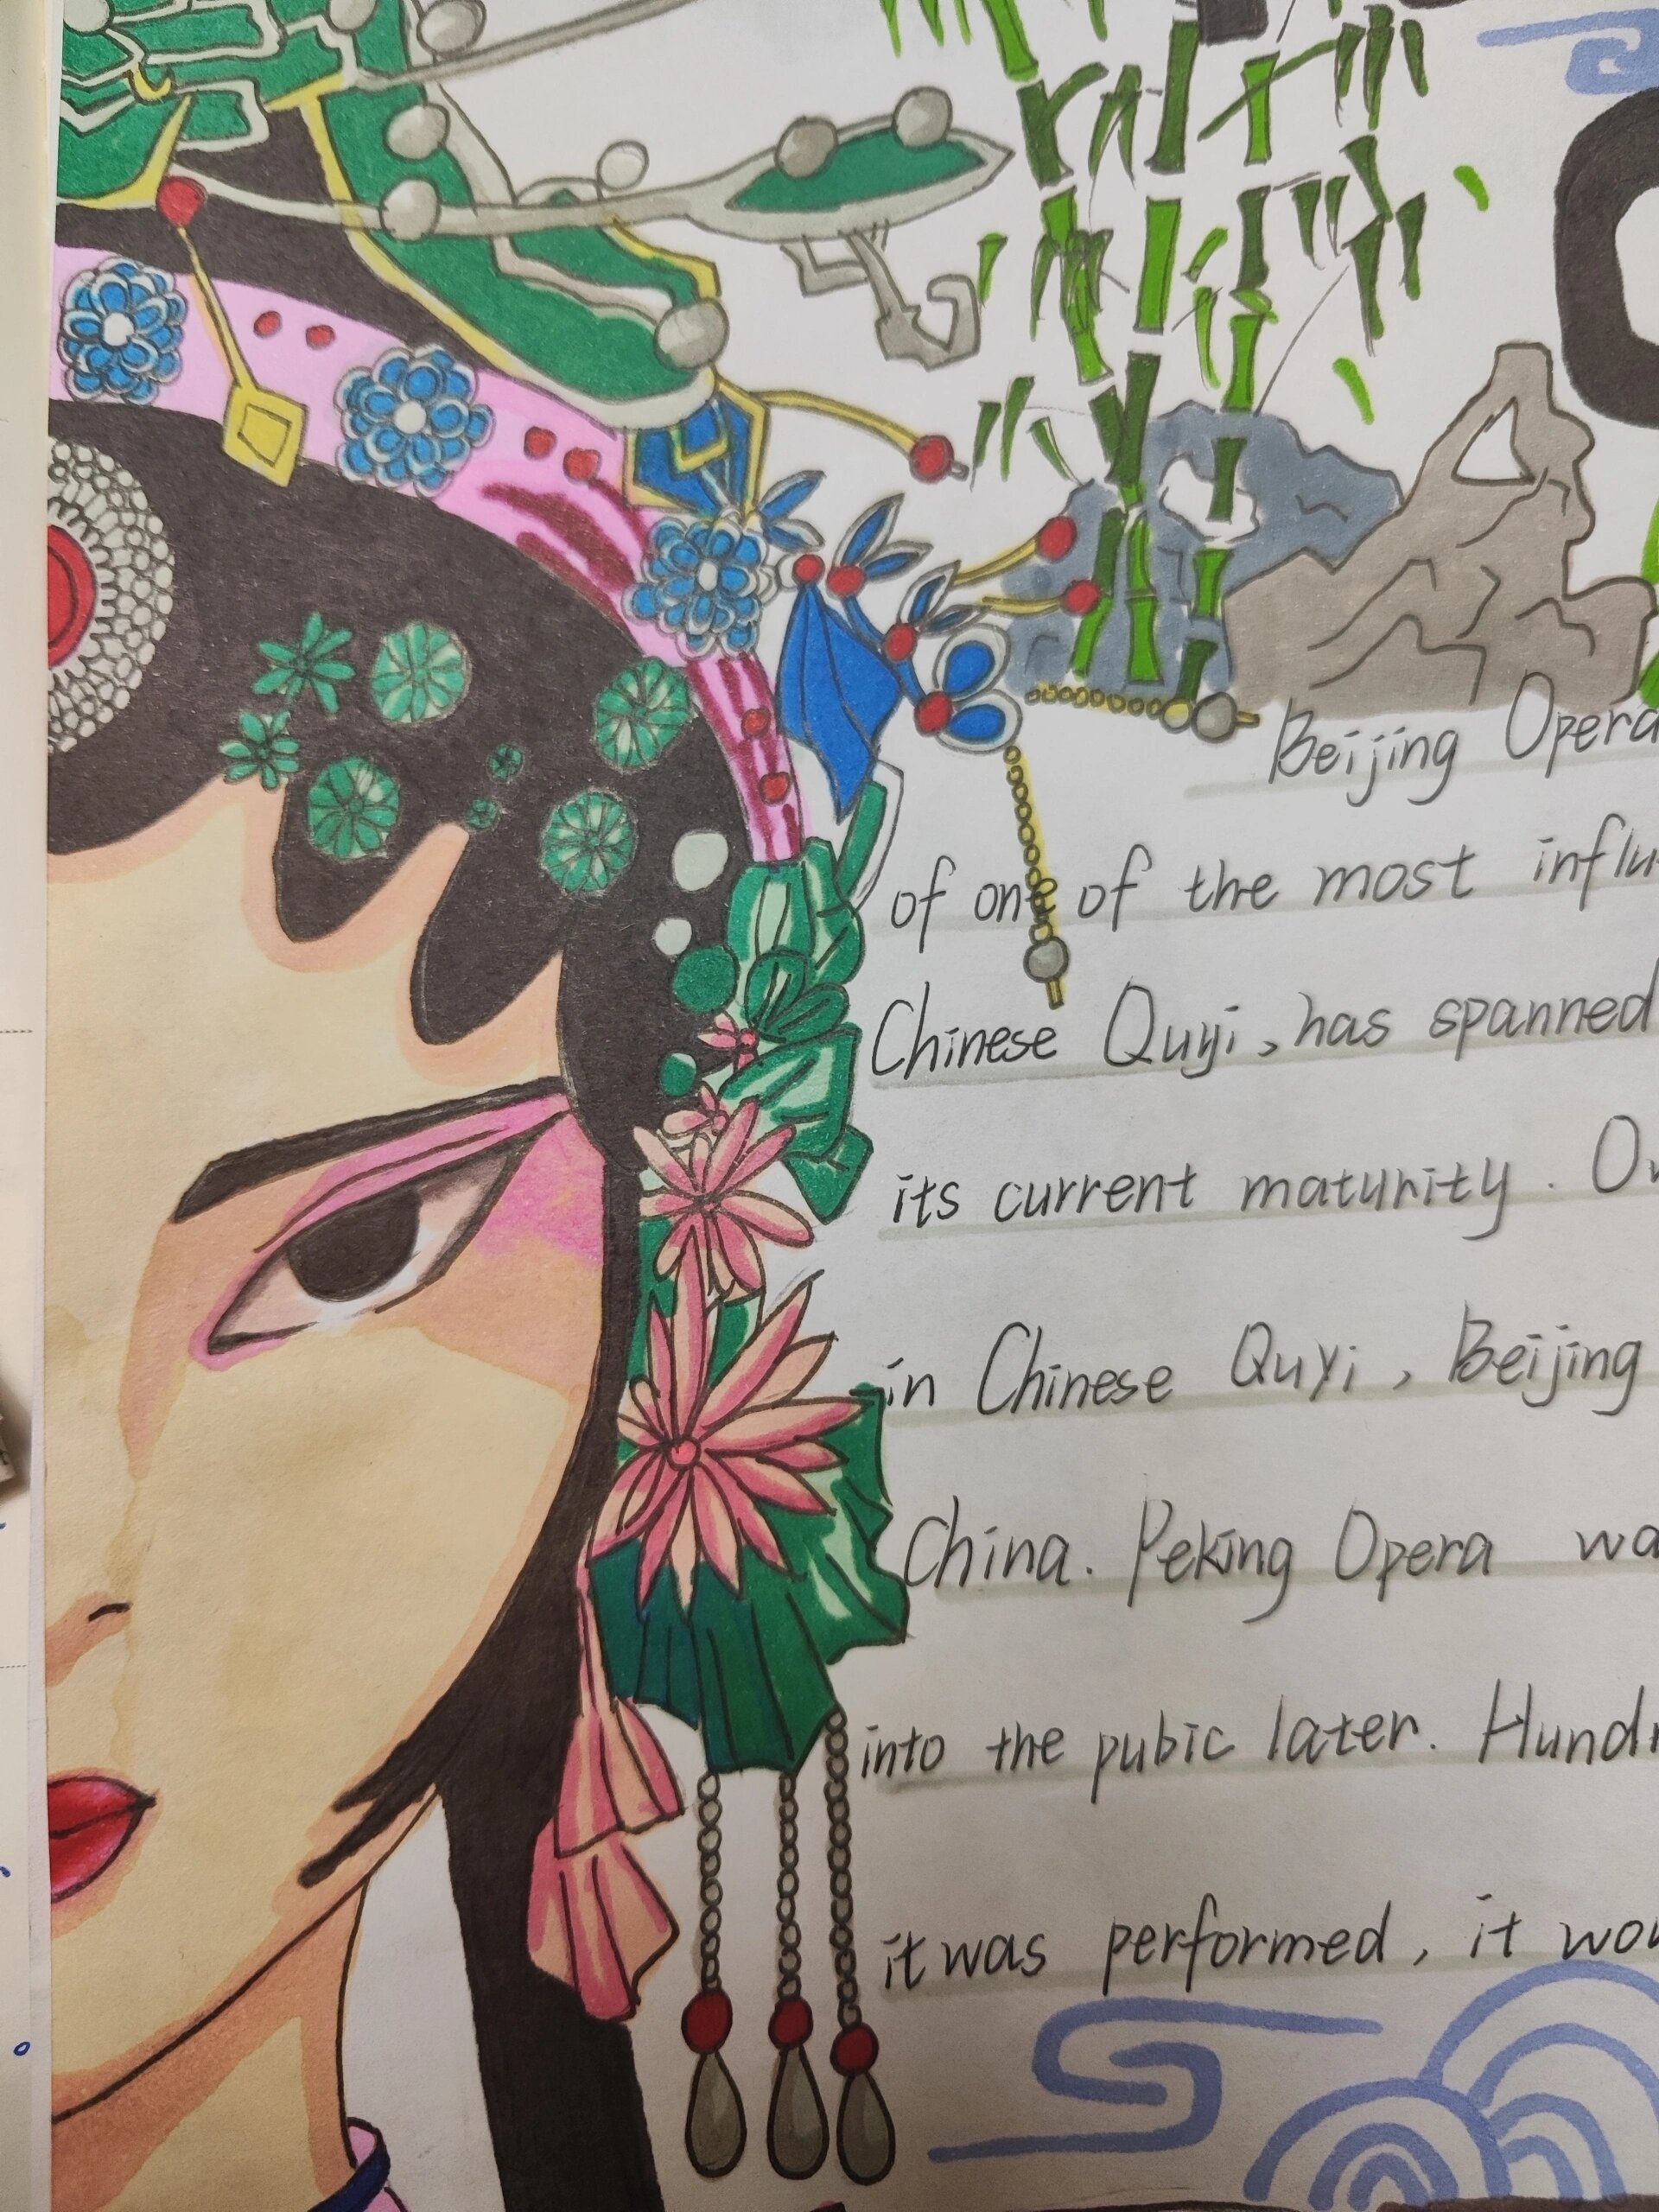 Beijing Opera
of one of the most influ
Chinese Quyi, has spanned
its current maturity. Ov
in Chinese Quyi, Beijing
China. Peking Opera wa
into the pubic later. Hundr
it was performed, it wou